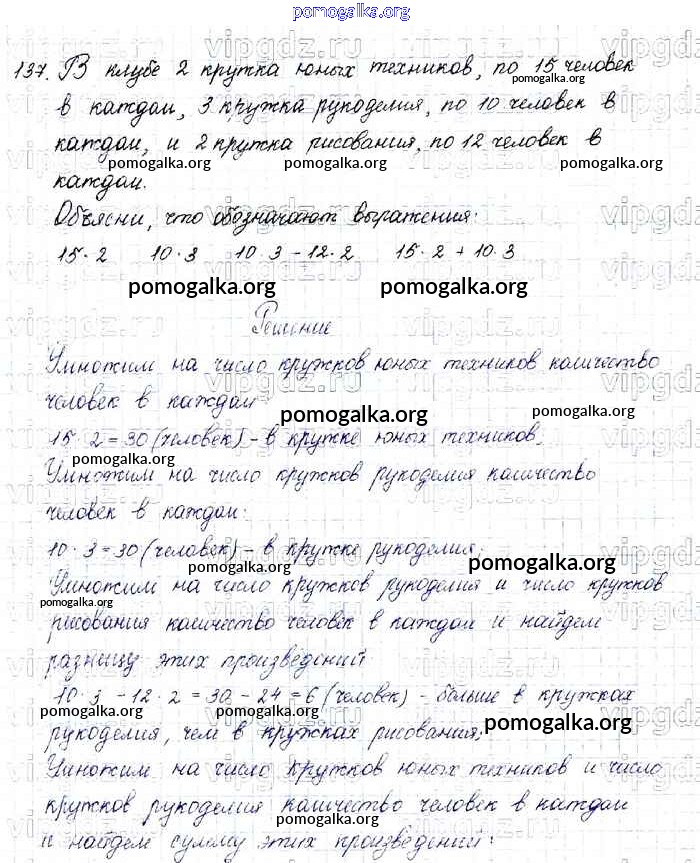 pomogalka.org
137. В клубе 2 кружка юных техников, по 15 человек
pomogalka.org
в каждом, 3 кружка рукоделия, по 10 человек в
каждом, и 2 кружка рисования, по 12 человек в
pomogalka.org pomogalka.org pomogalka.org
каждом.
Объясни, что обозначают выражения:
15·2 10·3 10·3-12·2 15·2+10·3
pomogalka.org pomogalka.org
Решение
Умножим на число кружков юных техников количество
человек в каждом
pomogalka.org pomogalka.org
15·2=30 (человек) - в кружке юных техников.
pomogalka.org
Умножим на число кружков рукоделия количество
человек в каждом:
10·3=30 (человек) - в кружке рукоделия;
pomogalka.org pomogalka.org
Умножим на число кружков рукоделия и число кружков
pomogalka.org
рисования количество человек в каждом и найдем
разницу этих произведений
10·3-12·2=30-24=6 (человек) - больше в кружках
pomogalka.org pomogalka.org pomogalka.org
рукоделия, чем в кружках рисования;
Умножим на число кружков юных техников и число
кружков рукоделия количество человек в каждом
pomogalka.org
и найдем сумму этих произведений: